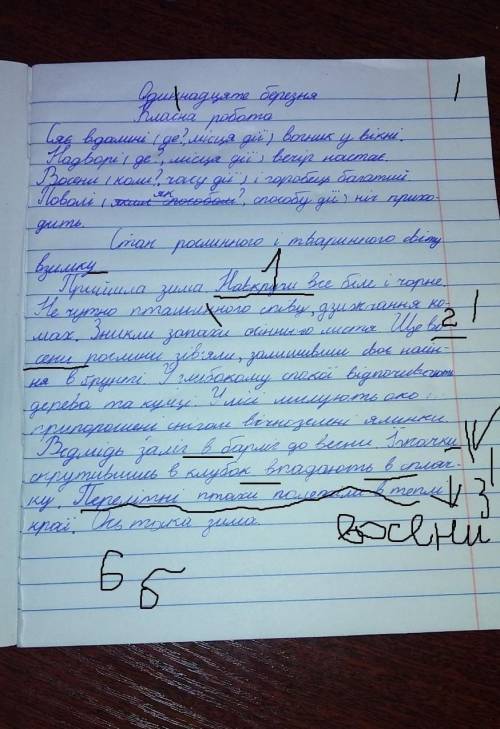 Одиннадцяте березня 1
Класна робота
Сяє вдалині (де?, місця дії) вогник у вікні.
Надворі (де?, місця дії) вечір настає.
Восени (коли?, часу дії) і горобець багатий
Поволі (яким способом? як, способу дії) ніч прихо-
дить.
Стан рослинного і тваринного світу
взимку 1
Прийшла зима. Навкруги все біле і чорне.
Не чутно пташиного співу, дзижчання ко- 1
мах. Зникли запахи осіннього листя. Ще во 2
сени рослини зів'яли, залишивши своє насін-
ня в ґрунті. У глибокому спокої відпочивають
дерева та кущі. У лісі милують око
припорошені снігом вічнозелені ялинки. V
Ведмідь заліг в барліг до весни. Їжачки
скрутившись в клубок впадають в спляч- 1
ку. Перелітні птахи полетіли в теплі V 3
край. Ось така зима. восени
6 б